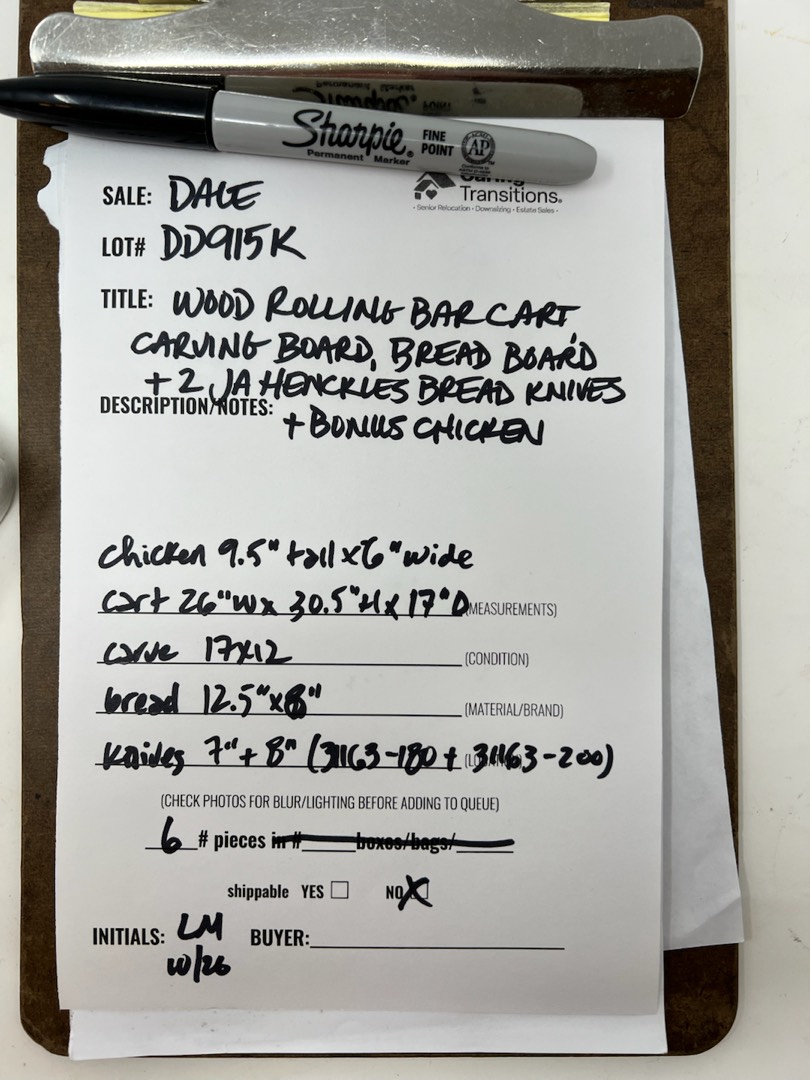 Sharpie® FINE POINT AP
Permanent Marker
Caring
Transitions®
• Senior Relocation • Downsizing • Estate Sales •
SALE: DALE
LOT# DD915K
TITLE: WOOD ROLLING BAR CART
CARVING BOARD, BREAD BOARD
+ 2 JA HENCKLES BREAD KNIVES
DESCRIPTION/NOTES:
+ BONUS CHICKEN
chicken 9.5" tall x 6" wide
cart 26"W x 30.5"H x 17"D (MEASUREMENTS)
carve 17x12 (CONDITION)
bread 12.5"x8" (MATERIAL/BRAND)
knives 7" + 8" (31163-180 + 31163-200)
(CHECK PHOTOS FOR BLUR/LIGHTING BEFORE ADDING TO QUEUE)
6 # pieces in #____boxes/bags/____
shippable YES ☐ NO X
INITIALS: LM BUYER:
10/26